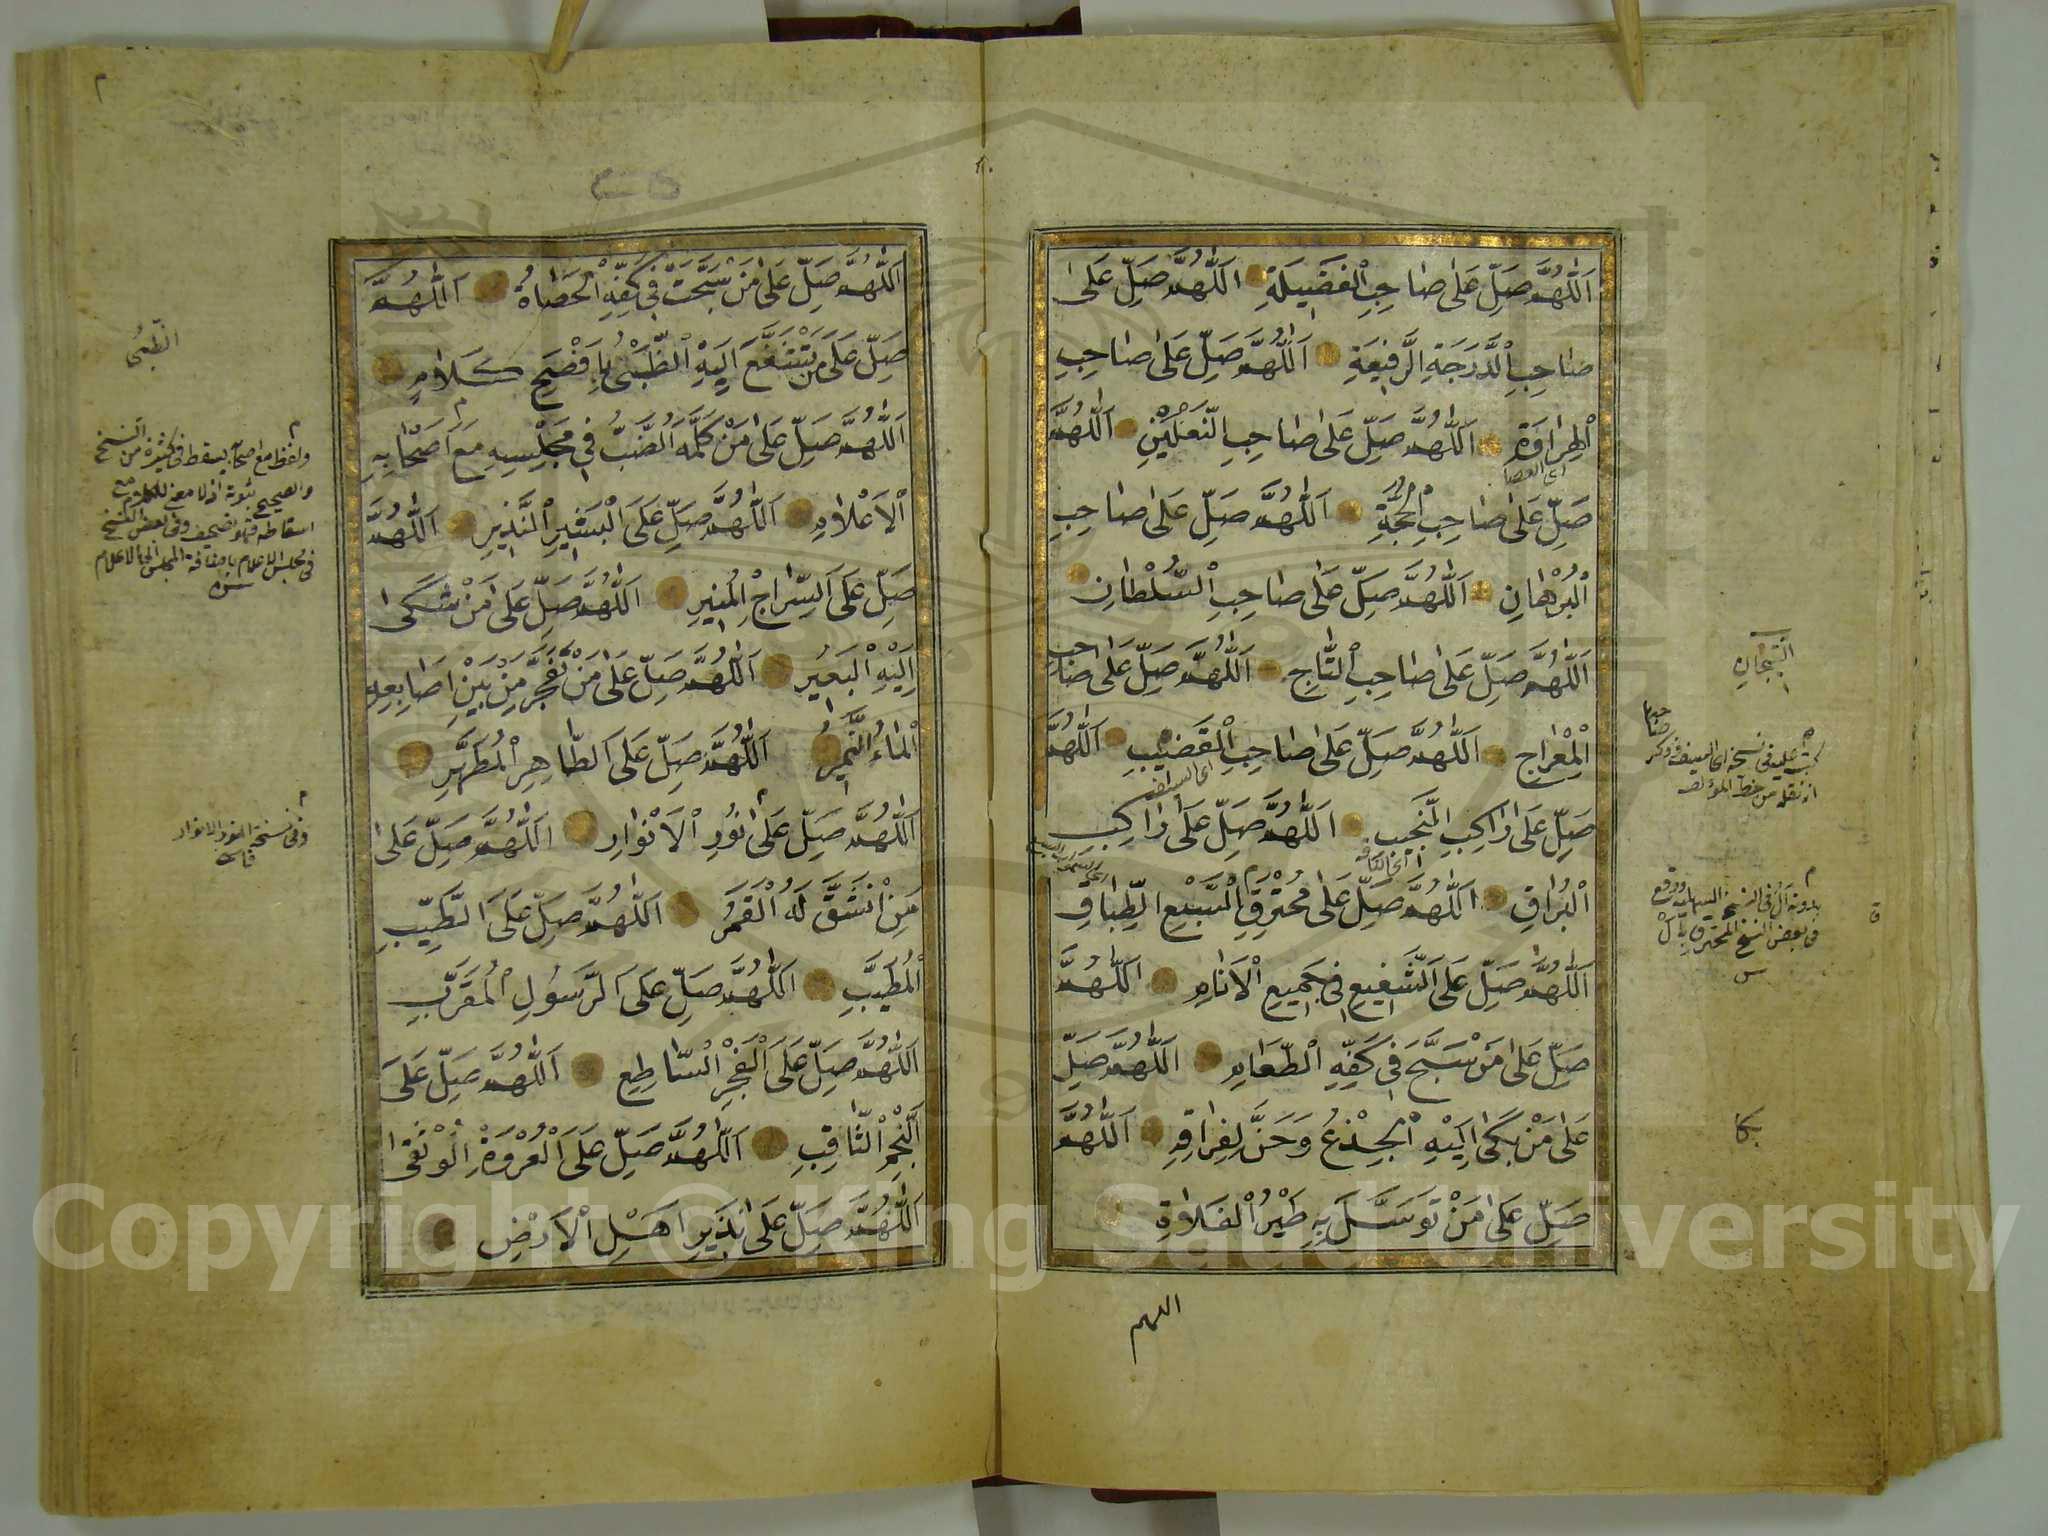 اَللّٰهُمَّ صَلِّ عَلٰى صَاحِبِ الْفَضٖيلَةِ اَللّٰهُمَّ صَلِّ عَلٰى
صَاحِبِ الدَّرَجَةِ الرَّفٖيعَةِ اَللّٰهُمَّ صَلِّ عَلٰى صَاحِبِ
الْهِرَاوَةِ اَللّٰهُمَّ صَلِّ عَلٰى صَاحِبِ النَّعْلَيْنِ اَللّٰهُمَّ
اى العصا
صَلِّ عَلٰى صَاحِبِ الْحُجَّةِ اَللّٰهُمَّ صَلِّ عَلٰى صَاحِبِ
الْبُرْهَانِ اَللّٰهُمَّ صَلِّ عَلٰى صَاحِبِ السُّلْطَانِ
اَللّٰهُمَّ صَلِّ عَلٰى صَاحِبِ التَّاجِ اَللّٰهُمَّ صَلِّ عَلٰى صَاحِبِ
الْمِعْرَاجِ اَللّٰهُمَّ صَلِّ عَلٰى صَاحِبِ الْقَضٖيبِ اَللّٰهُمَّ
اى السيف
صَلِّ عَلٰى رَاكِبِ النَّجٖيبِ اَللّٰهُمَّ صَلِّ عَلٰى رَاكِبِ
اى الناقة
الْبُرَاقِ اَللّٰهُمَّ صَلِّ عَلٰى مُخْتَرِقِ السَّبْعِ الطِّبَاقِ
اَللّٰهُمَّ صَلِّ عَلَى الشَّفٖيعِ فٖى جَمٖيعِ الْاَنَامِ اَللّٰهُمَّ
صَلِّ عَلٰى مَنْ سَبَّحَ فٖى كَفِّهِ الطَّعَامِ اَللّٰهُمَّ صَلِّ
عَلٰى مَنْ بَكٰى اِلَيْهِ الْجِذْعُ وَحَنَّ لِفِرَاقِهِ اَللّٰهُمَّ
صَلِّ عَلٰى مَنْ تَوَسَّلَ بِهٖ طَيْرُ الْفَلَاةِ
اللهم
التيجان
بكا
اَللّٰهُمَّ صَلِّ عَلٰى مَنْ سَبَّحَتْ فٖى كَفِّهِ الْحَصَاةُ اَللّٰهُمَّ
صَلِّ عَلٰى مَنْ تَشَفَّعَ اِلَيْهِ الظَّبْىُ بِاَفْصَحِ كَلَامٍ
اَللّٰهُمَّ صَلِّ عَلٰى مَنْ كَلَّمَهُ الضَّبُّ فٖى مَجْلِسِهٖ مَعَ اَصْحَابِهِ
الْاَعْلَامِ اَللّٰهُمَّ صَلِّ عَلَى الْبَشٖيرِ النَّذٖيرِ اَللّٰهُمَّ
صَلِّ عَلَى السِّرَاجِ الْمُنٖيرِ اَللّٰهُمَّ صَلِّ عَلٰى مَنْ شَكٰى
اِلَيْهِ الْبَعٖيرُ اَللّٰهُمَّ صَلِّ عَلٰى مَنْ تَفَجَّرَ مِنْ بَيْنِ اَصَابِعِهِ
الْمَاءُ النَّمٖيرُ اَللّٰهُمَّ صَلِّ عَلَى الطَّاهِرِ الْمُطَهَّرِ
اَللّٰهُمَّ صَلِّ عَلٰى نُورِ الْاَنْوَارِ اَللّٰهُمَّ صَلِّ عَلٰى
مَنِ انْشَقَّ لَهُ الْقَمَرُ اَللّٰهُمَّ صَلِّ عَلَى الطَّيِّبِ
الْمُطَيَّبِ اَللّٰهُمَّ صَلِّ عَلَى الرَّسُولِ الْمُقَرَّبِ
اَللّٰهُمَّ صَلِّ عَلَى الْفَجْرِ السَّاطِعِ اَللّٰهُمَّ صَلِّ عَلَى
النَّجْمِ الثَّاقِبِ اَللّٰهُمَّ صَلِّ عَلَى الْعُرْوَةِ الْوُثْقٰى
اَللّٰهُمَّ صَلِّ عَلٰى نَذٖيرِ اَهْلِ الْاَرْضِ
الظبى
ولفظ مع اصحابه يسقط فى كثيرة من النسخ
وفى نسخة النور الانوار
Copyright © King Saud University